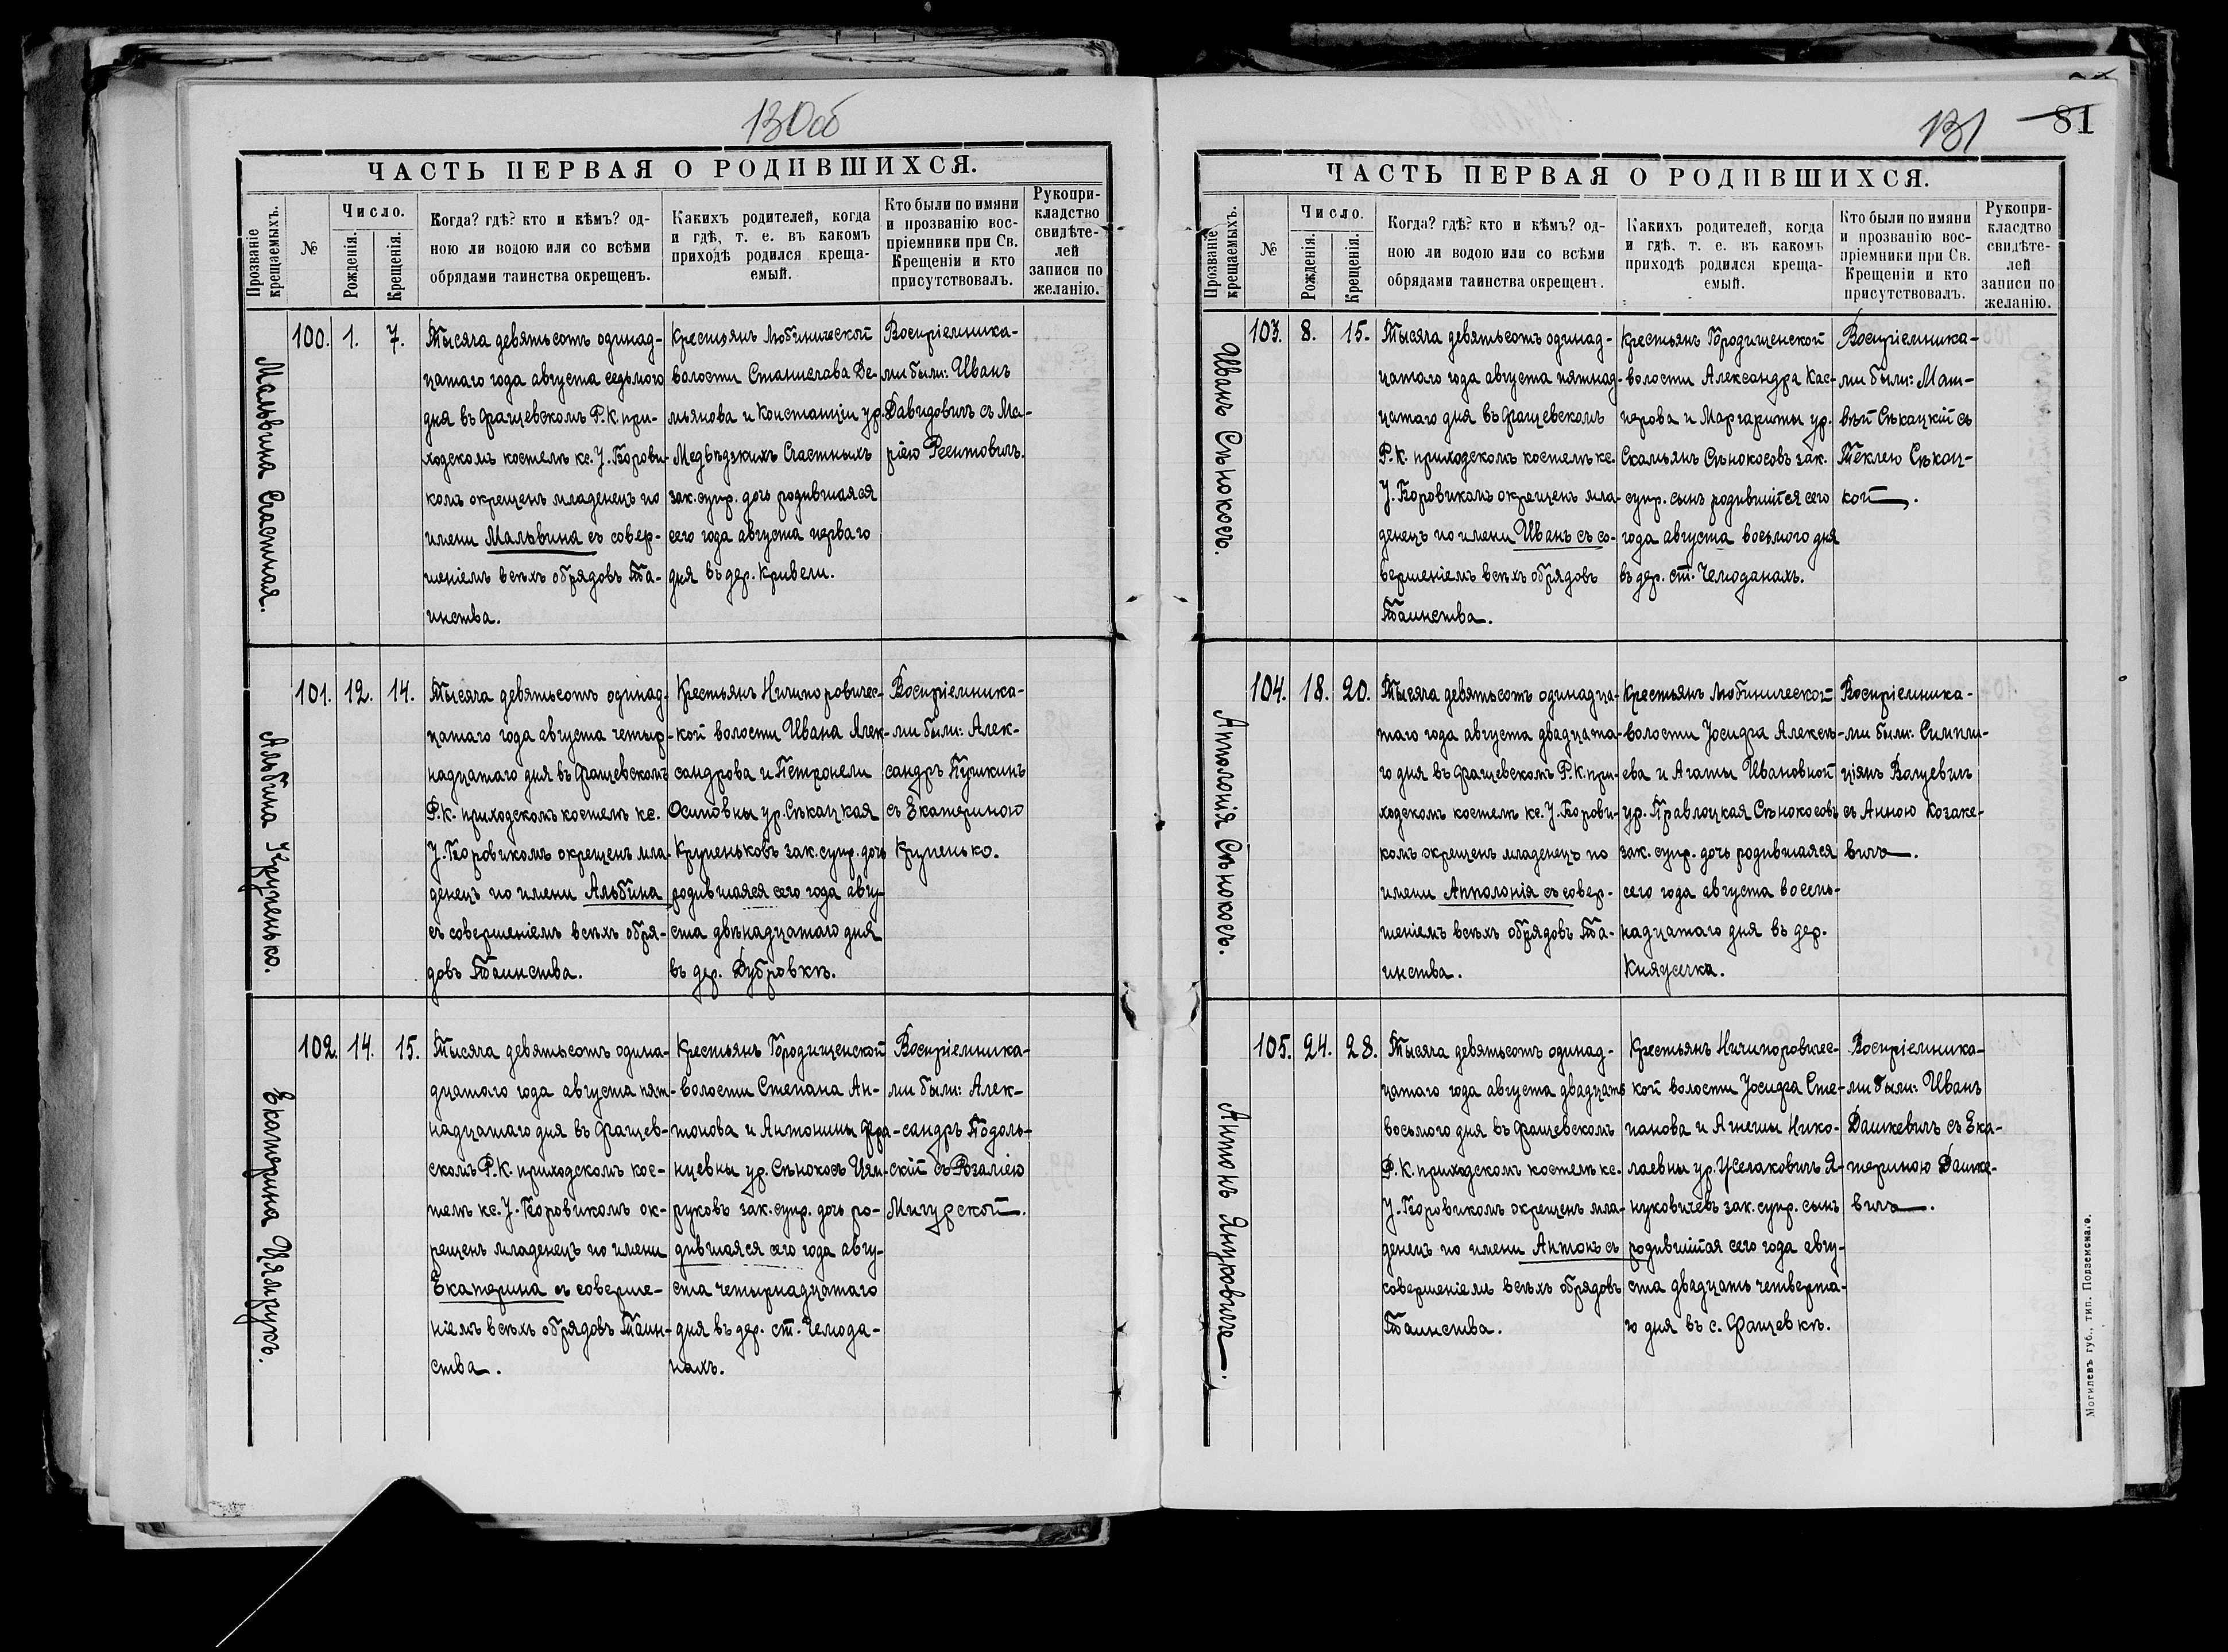 130об
ЧАСТЬ ПЕРВАЯ О РОДИВШИХСЯ.
Прозваніе крещаемыхъ.
№
Число.
Рожденія.
Крещенія.
Когда? гдѣ? кто и кѣмъ? од-
ною ли водою или со всѣми
обрядами таинства окрещенъ.
Какихъ родителей, когда
и гдѣ, т. е. въ какомъ
приходѣ родился креща-
емый.
Кто были по имяни
и прозванію вос-
пріемники при Св.
Крещеніи и кто
присутствовалъ.
Рукопри-
кладство
свидѣте-
лей
записи по
желанію.
Мальвина Счастная.
100. 1. 7.
Тысяча девятьсотъ одинад-
цатаго года августа седьмого
дня въ Фащевскомъ Р.К. при-
ходскомъ костелѣ кс. У. Борови-
комъ окрещенъ младенецъ по
имени Мальвина съ совер-
шеніемъ всѣхъ обрядовъ Та-
инства.
Крестьянъ Любиничской
волости Станислава Де-
мьянова и Констанціи ур.
Медвѣдзкихъ Счастныхъ
зак. супр. дочь родившаяся
сего года августа перваго
дня въ дер. Кривели.
Воспріемника-
ми были: Иванъ
Давидовичъ съ Ма-
ріею Рсентовичъ.
Альбина Крупенько.
101. 12. 14.
Тысяча девятьсотъ одинад-
цатаго года августа четыр-
надцатаго дня въ Фащевскомъ
Р.К. приходскомъ костелѣ кс.
У. Боровикомъ окрещенъ мла-
денецъ по имени Альбина
съ совершеніемъ всѣхъ обря-
довъ Таинства.
Крестьянъ Ничипоровичес-
кой волости Ивана Алек-
сандрова и Петронели
Осиповны ур. Сѣкацкая
Крупеньковъ зак. супр. дочь
родившаяся сего года авгу-
ста двѣнадцатаго дня
въ дер. Дубровкѣ.
Воспріемника-
ми были: Алек-
сандръ Пушкинъ
съ Екатериною
Крупенько.
Екатерина Цямрукъ.
102. 14. 15.
Тысяча девятьсотъ одина-
дцатаго года августа пят-
надцатаго дня въ Фащев-
скомъ Р.К. приходскомъ кос-
телѣ кс. У. Боровикомъ ок-
рещенъ младенецъ по имени
Екатерина съ соверше-
ніемъ всѣхъ обрядовъ Таин-
ства.
Крестьянъ Городищенской
волости Степана Ан-
тонова и Антонины Фра-
нцевны ур. Сѣнокосъ Цям-
руковъ зак. супр. дочь ро-
дившаяся сего года авгу-
ста четырнадцатаго
дня въ дер. ст. Чемода-
нахъ.
Воспріемника-
ми были: Алек-
сандръ Подоль-
скій съ Розаліею
Мигурской.
131 81
ЧАСТЬ ПЕРВАЯ О РОДИВШИХСЯ.
Прозваніе крещаемыхъ.
№
Число.
Рожденія.
Крещенія.
Когда? гдѣ? кто и кѣмъ? од-
ною ли водою или со всѣми
обрядами таинства окрещенъ.
Какихъ родителей, когда
и гдѣ, т. е. въ какомъ
приходѣ родился креща-
емый.
Кто были по имяни
и прозванію вос-
пріемники при Св.
Крещеніи и кто
присутствовалъ.
Рукопри-
кладство
свидѣте-
лей
записи по
желанію.
Иванъ Сѣнокосъ.
103. 8. 15.
Тысяча девятьсотъ одинад-
цатаго года августа пятнад-
цатаго дня въ Фащевскомъ
Р.К. приходскомъ костелѣ кс.
У. Боровикомъ окрещенъ мла-
денецъ по имени Иванъ съ со-
вершеніемъ всѣхъ обрядовъ
Таинства.
Крестьянъ Городищенской
волости Александра Кас-
перова и Маргариты ур.
Скамьянъ Сѣнокосовъ зак.
супр. сынъ родившійся сего
года августа восьмого дня
въ дер. ст. Чемоданахъ.
Воспріемника-
ми были: Мат-
вѣй Сѣкацкій съ
Теклею Сѣкац-
кой.
Апполонія Сѣнокосъ.
104. 18. 20.
Тысяча девятьсотъ одинадца-
таго года августа двадцата-
го дня въ Фащевскомъ Р.К. при-
ходскомъ костелѣ кс. У. Борови-
комъ окрещенъ младенецъ по
имени Апполонія съ совер-
шеніемъ всѣхъ обрядовъ Та-
инства.
Крестьянъ Любиничской
волости Іосифа Алексѣ-
ева и Агаты Ивановной
ур. Правлоцкая Сѣнокосовъ
зак. супр. дочь родившаяся
сего года августа восем-
надцатаго дня въ дер.
Князючка.
Воспріемника-
ми были: Симпли-
ціянъ Волцевичъ
съ Анною Козаке-
вичъ.
Антонъ Януковичъ.
105. 24. 28.
Тысяча девятьсотъ одинад-
цатаго года августа двадцать
восьмого дня въ Фащевскомъ
Р.К. приходскомъ костелѣ кс.
У. Боровикомъ окрещенъ мла-
денецъ по имени Антонъ съ
совершеніемъ всѣхъ обрядовъ
Таинства.
Крестьянъ Ничипоровичес-
кой волости Іосифа Сте-
панова и Агнеши Нико-
лаевны ур. Уселаковичъ Я-
нуковичевъ зак. супр. сынъ
родившійся сего года авгу-
ста двадцать четверта-
го дня въ с. Фащевкѣ.
Воспріемника-
ми были: Иванъ
Дашкевичъ съ Ека-
териною Дашке-
вичъ.
Могилевъ губ., тип. Подземскаго.